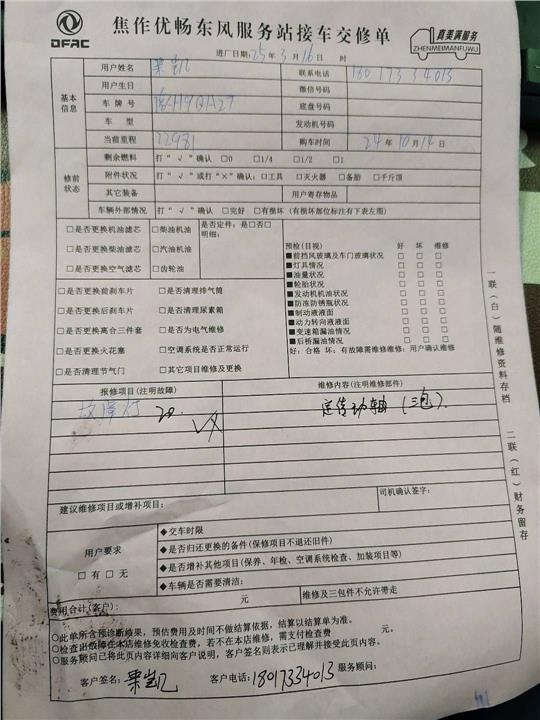 DFAC
焦作优畅东风服务站接车交修单
真美满服务
ZHENMEIMANFUWU
进厂日期:25年3月16日 时
基本信息
用户姓名 栗凯 联系电话 18017334013
用户生日 微信号码
车牌号 H9QH27 底盘号码
车型 发动机号码
当前里程 22981 购车时间 24年10月14日
修前状态
剩余燃料 打“√”确认 □0 □1/4 □1/2 □1
附件状况 打“√”或打“×”确认:□工具 □灭火器 □备胎 □千斤顶
其它装备 用户寄存物品
车辆外部情况 打“√”确认 □完好 □有损坏(有损坏部位标注有下表左图)
□是否更换机油滤芯 □柴油机油 是否定件:是□否□
明细:
□是否更换柴油滤芯 □汽油机油
□是否更换空气滤芯 □齿轮油
预检(目视) 好 坏 维修
■前挡风玻璃及车门玻璃状况 □ □ □
■灯具情况 □ □ □
■油量状况 □ □ □
■轮胎状况 □ □ □
■发动机机油状况 □ □ □
■防冻防锈瓶状况 □ □ □
■制动液液面 □ □ □
■动力转向液液面 □ □ □
■变速箱漏油情况 □ □ □
■后桥漏油情况 □ □ □
好:合格 坏:有故障需维修维修:用户确认维修
□是否更换前刹车片 □是否清理排气筒
□是否更换后刹车片 □是否清理尿素箱
□是否更换离合三件套 □是否为电气维修
□是否更换火花塞 □空调系统是否正常运行
□是否清理节气门 □其它项目维修及更换
报修项目(注明故障) 维修内容(注明维修部件)
故障灯 定传动轴(三包)
建议维修项目或增补项目: 司机确认签字:
用户要求
□有□无
◆交车时限
◆是否归还更换的备件(保修项目不退还旧件)
◆是否增补其他项目(保养、年检、空调系统检查、加装项目等)
◆车辆是否需要清洁:
费用合计(客户): 元 维修及三包件不允许带走
○此单所含预诊断结果,预估费用及时间不做结算依据,结算以结算单为准。
○检查出故障在本店维修免收检查费,若不在本店维修,需支付检查费 元。
○服务顾问已将此页内容详细向客户说明,客户签名则表示已理解并接受此页内容。
客户签名:栗凯 客户电话:18017334013 服务顾问:
一联(白)随维修资料存档
二联(红)财务留存